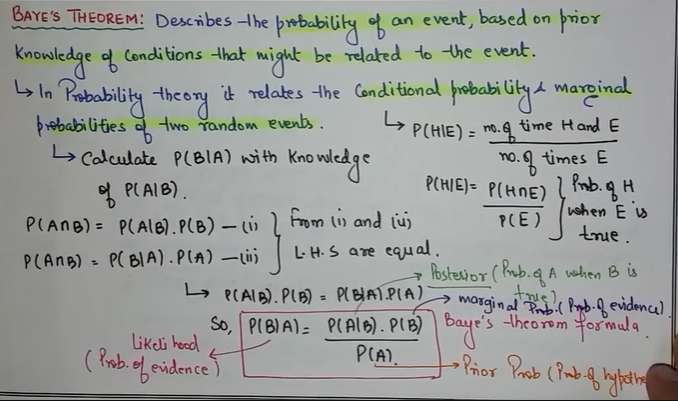 BAYE'S THEOREM: Describes the probability of an event, based on prior
Knowledge of Conditions that might be related to the event.
↳ In Probability theory it relates the Conditional probability & marginal
probabilities of two random events.
↳ P(H|E) = no. of time H and E / no. of times E
↳ Calculate P(B|A) with Knowledge
of P(A|B).
P(H|E) = P(H∩E) / P(E) } Prob. of H when E is true.
P(A∩B) = P(A|B). P(B) — (i)
P(A∩B) = P(B|A). P(A) — (ii)
} From (i) and (ii)
L.H.S are equal.
↳ P(A|B). P(B) = P(B|A). P(A)
Posterior (Prob. of A when B is
true)
marginal Prob. (Prob. of evidence).
So, P(B|A) = P(A|B). P(B) / P(A).
Baye's theorem formula.
Likelihood
(Prob. of evidence)
Prior Prob (Prob. of hypothe